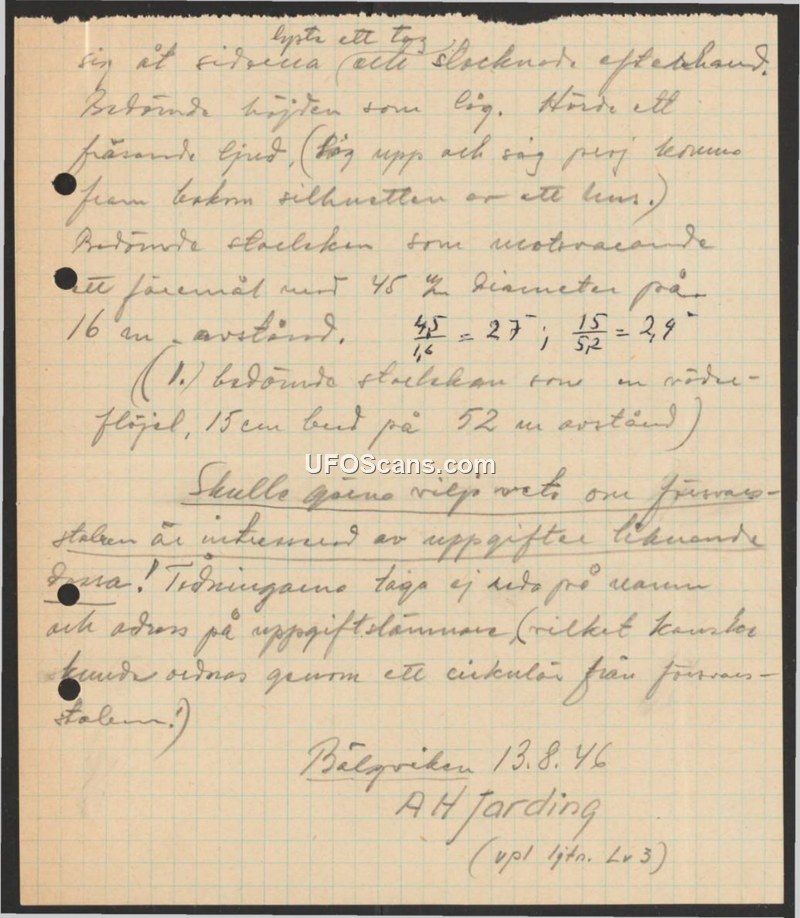 lyste ett tag
sig åt sidorna och slocknade efterhand.
Bedömde höjden som låg. Hörde ett
fräsande ljud, (såg upp och såg proj komma
fram bakom silhuetten av ett hus.)
Bedömde storleken som motsvarande
ett föremål med 45 diameter på
16 m avstånd. 4,5/1,6 = 27 ; 15/5,2 = 2,9
(1.) bedömde storleken som en väder-
flöjel, 15 cm bred på 52 m avstånd)
UFOScans.com
Skulle gärna vilja veta om försvars-
staben är intresserad av uppgifter liknande
dessa! Tidningarna taga ej reda på namn
och adress på uppgiftslämnare, (vilket kanske
kunde ordnas genom ett cirkulär från försvars-
staben!)
Bälgviken 13.8.46
A H Jarding
(vpl ljtn. Lv 3)